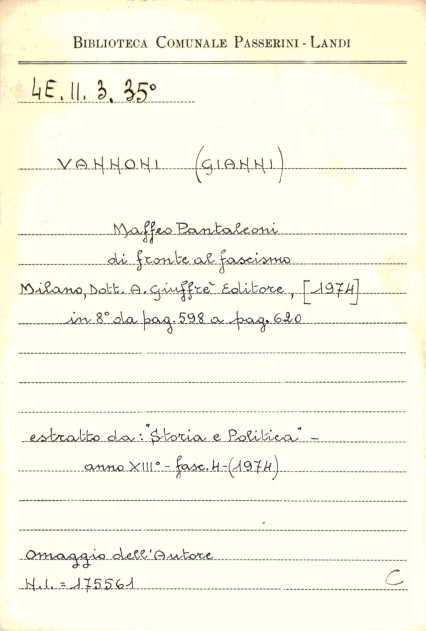 BIBLIOTECA COMUNALE PASSERINI - LANDI
4E. II. 3. 35°
VANNONI (GIANNI)
Maffeo Pantaleoni
di fronte al fascismo
Milano, Dott. A. Giuffrè Editore, [1974]
in 8° da pag. 598 a pag. 620
estratto da: "Storia e Politica" -
anno XIII° - fasc. 4 - (1974)
Omaggio dell'Autore
N.I. = 175561
C